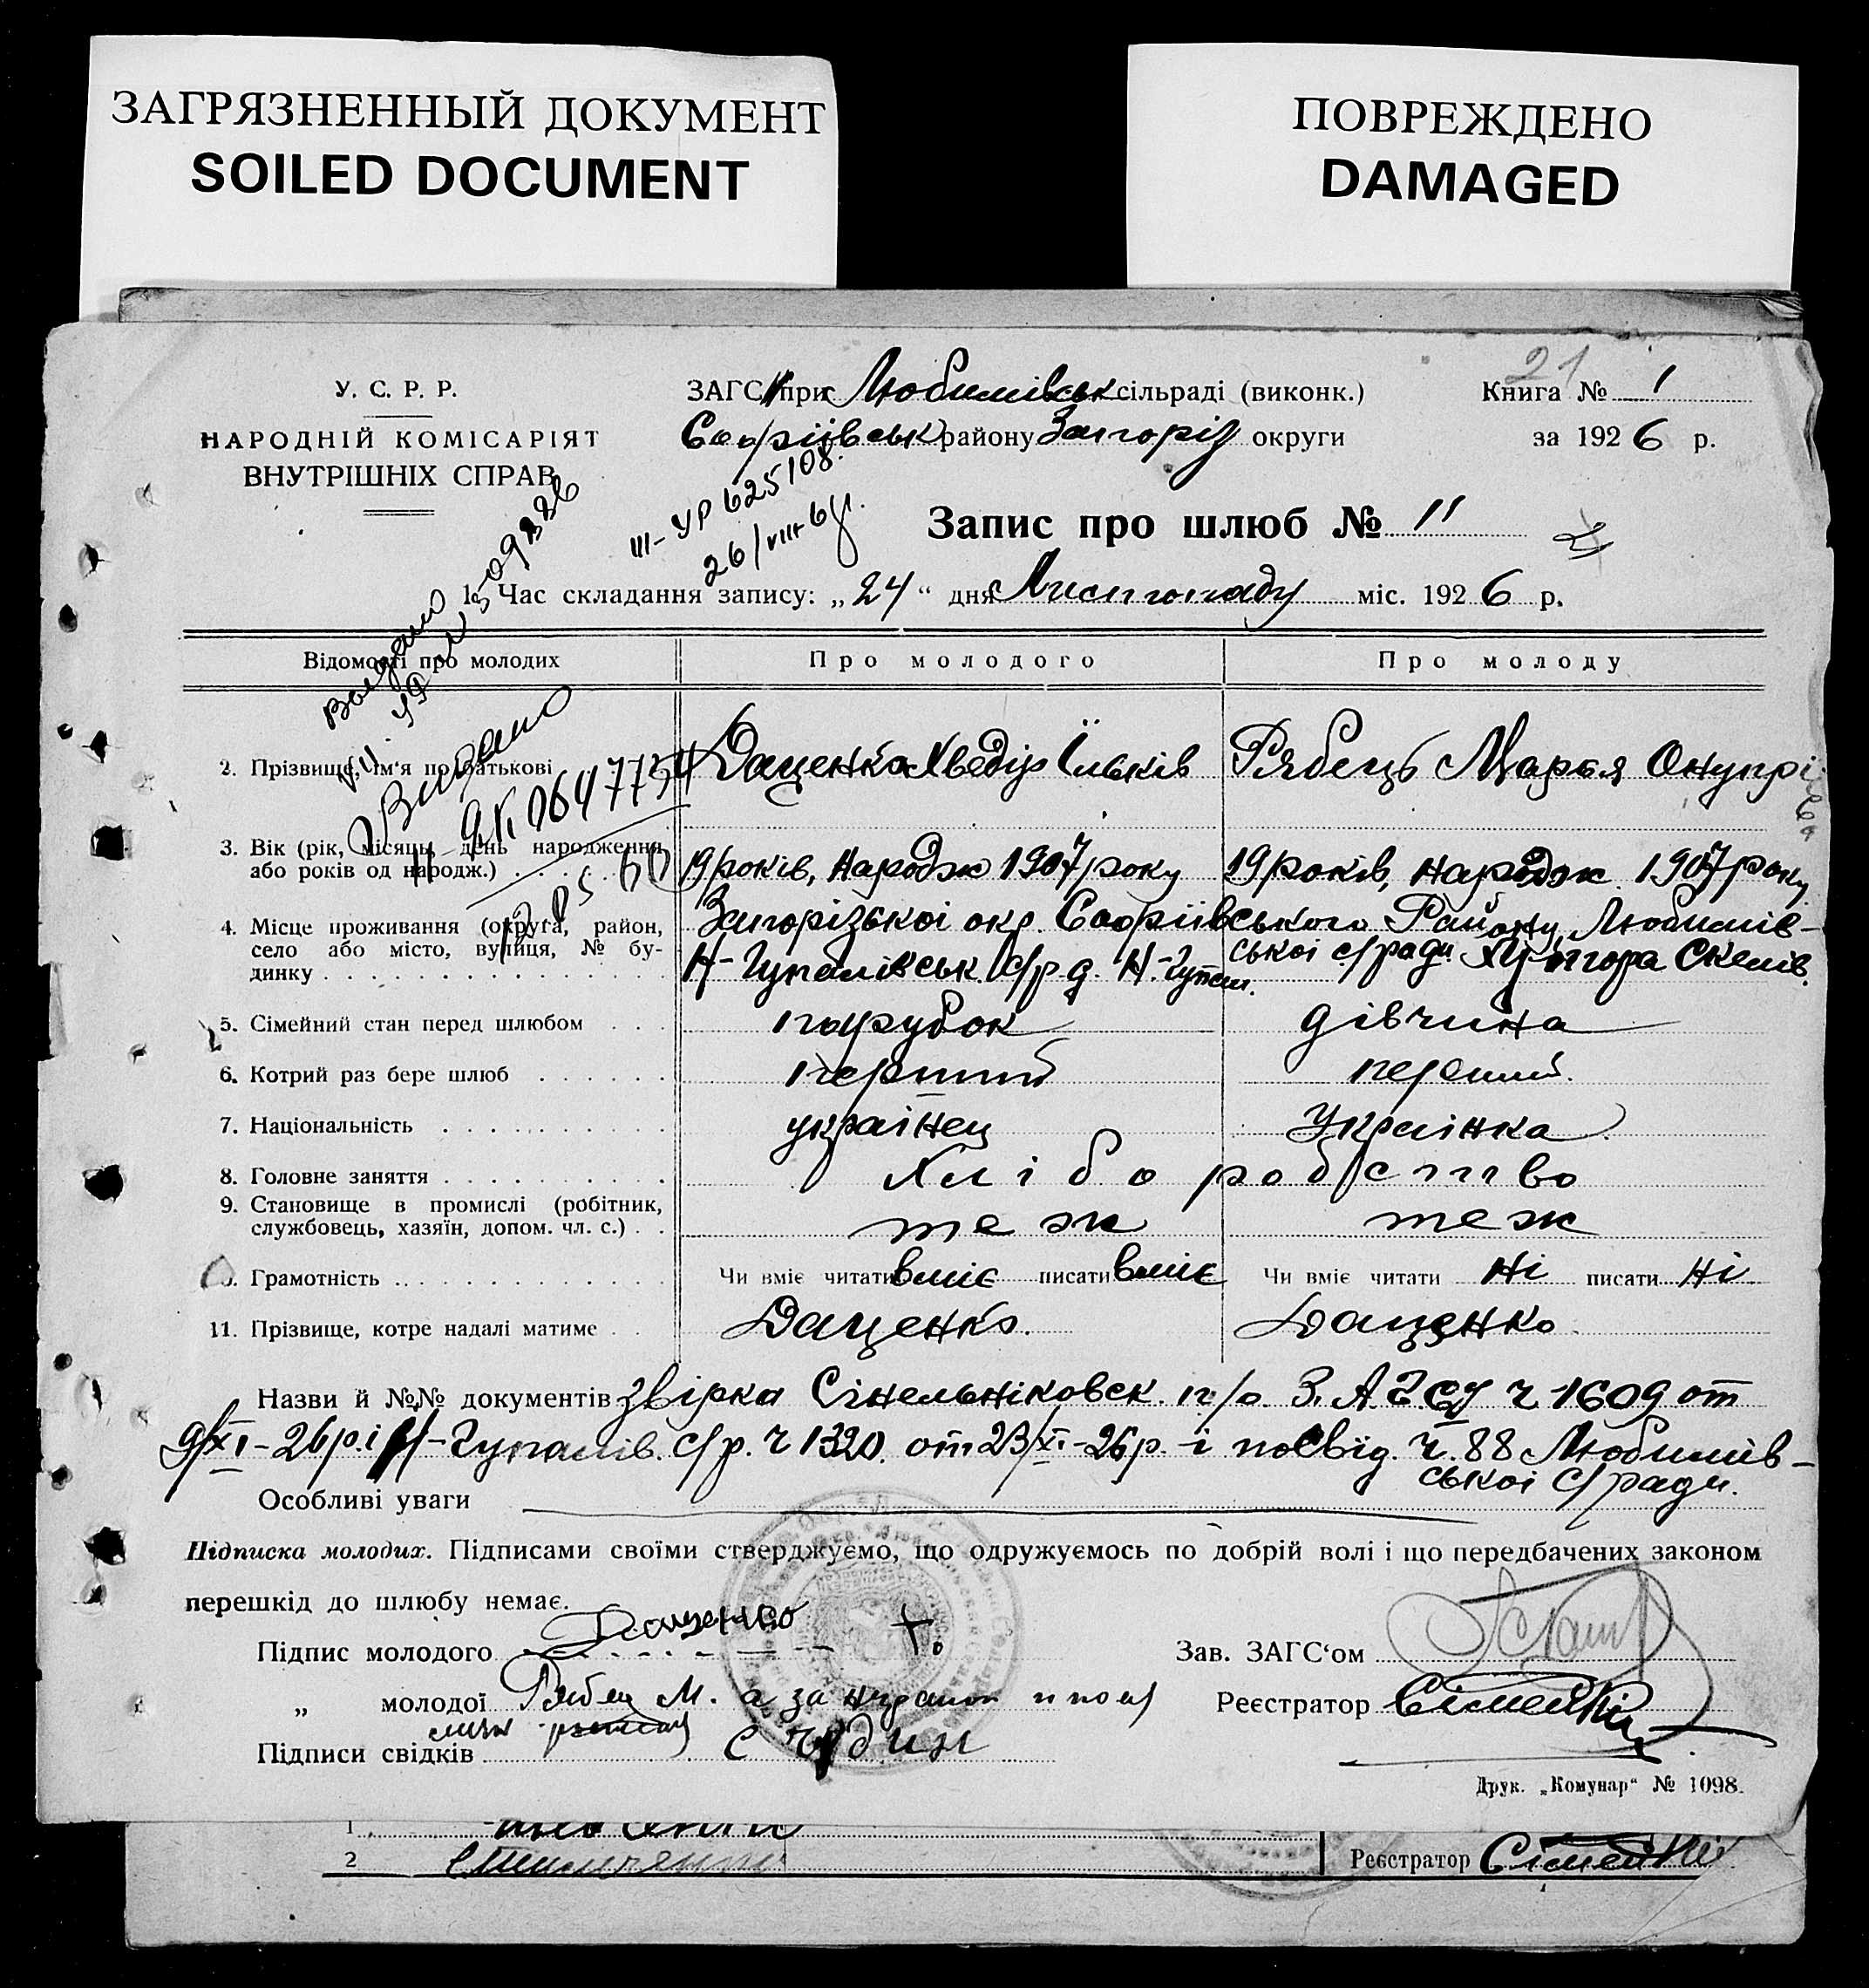 ЗАГРЯЗНЕННЫЙ ДОКУМЕНТ
SOILED DOCUMENT
ПОВРЕЖДЕНО
DAMAGED
21
У. С. Р. Р.
НАРОДНІЙ КОМІСАРІЯТ
ВНУТРІШНІХ СПРАВ
ЗАГС при Любимівськ сільраді (виконк.)
Софіївськ району Запоріз округи
Книга № 1
за 1926 р.
III-УР 625108.
26/VIII
Запис про шлюб № 11
1. Час складання запису: „24“ дня Листопаду міс. 1926 р.
Відомості про молодих
Про молодого
Про молоду
Видано
2. Прізвище, ім'я по батькові
Даценко Хведір Ільків
Рябець Марья Онупрі
3. Вік (рік, місяць, день народження, або років од народж.)
19 років, народж 1907 року
19 років, народж 1907 року
4. Місце проживання (округа, район, село або місто, вулиця, № будинку
Запорізькоі окр. Софіївського Району, Любимів-
Н-Гупалівськ. с/р д. Н.-Гупал.
ськоі с/ради Хутора Скелів.
5. Сімейний стан перед шлюбом
парубок
дівчина
6. Котрий раз бере шлюб
перший
перший.
7. Національність
украінец
Украінка
8. Головне заняття
Хліборобство
9. Становище в промислі (робітник, службовець, хазяїн, допом. чл. с.)
теж
теж
Грамотність
Чи вміє читати вміє писати вміє
Чи вміє читати ні писати ні
11. Прізвище, котре надалі матиме
Даценко.
Даценко.
Назви й №№ документів звірка Сінельніковск. п/о З.А.Г.С. ч 1609 от
9/XI-26 р. і Н-Гупалів. с/р. ч 1320. от 23/XI-26 р. і посвід. ч. 88 Любимів-
ськоі с/ради.
Особливі уваги
Підписка молодих. Підписами своїми стверджуємо, що одружуємось по добрій волі і що передбачених законом
перешкід до шлюбу немає.
Підпис молодого Даценко
Зав. ЗАГС'ом
„ молодої Рябец М. а за
Реєстратор
Підписи свідків
Друк. „Комунар“ № 1098.
1
2
Реєстратор